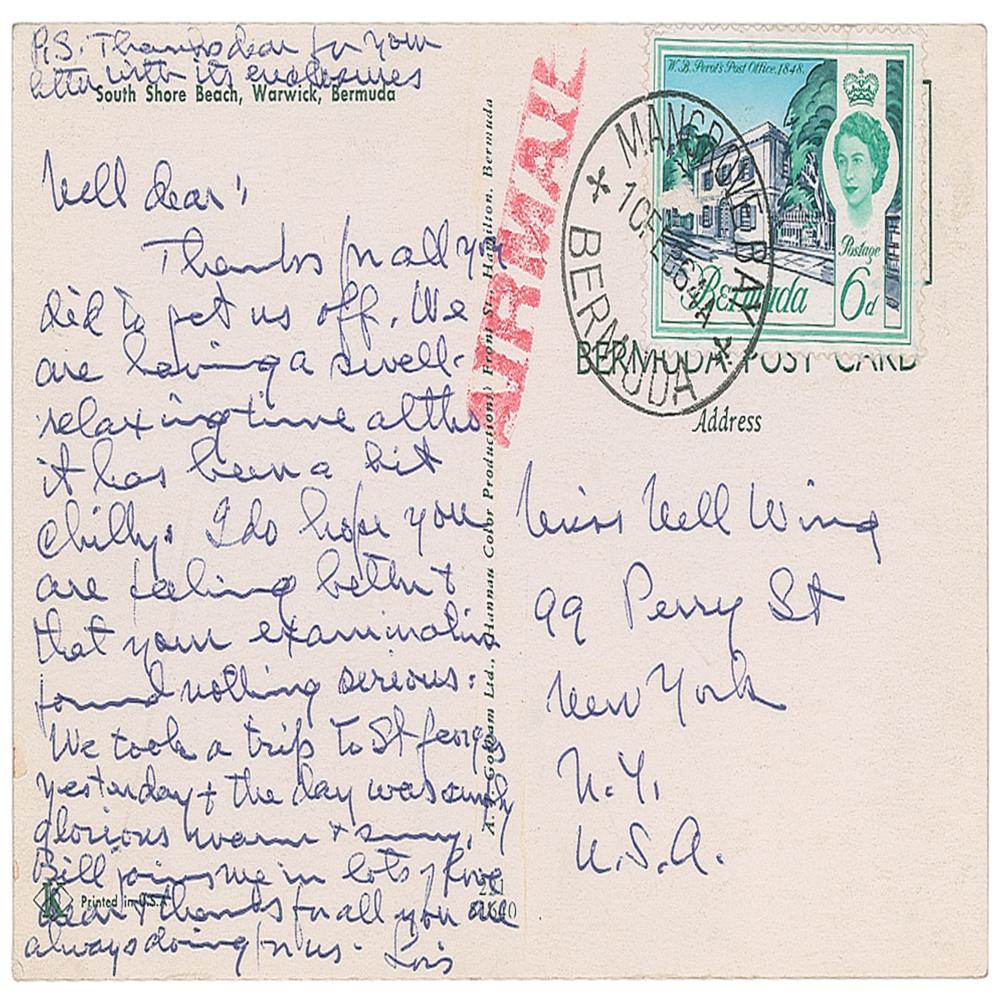 P.S. Thanks dear for your
letter with its enclosures
South Shore Beach, Warwick, Bermuda
Well dear,
Thanks for all you
did to get us off. We
are having a swell-
relaxing time altho
it has been a bit
chilly. I do hope you
are feeling better &
that your examination
found nothing serious.
We took a trip to St Georges
yesterday & the day was simply
glorious warm & sunny.
Bill joins me in lots of love
dear & thanks for all you are
always doing for us. Lois
Printed in U.S.A.
K
AIRMAIL
Ltd., (Hannau Color Productions) Front St., Hamilton, Bermuda
W.B. Perot's Post Office, 1848.
Postage
6d
Bermuda
MANGROVE BAY
BERMUDA
BERMUDA POST CARD
Address
Miss Nell Wing
99 Perry St
New York
N.Y.
U.S.A.